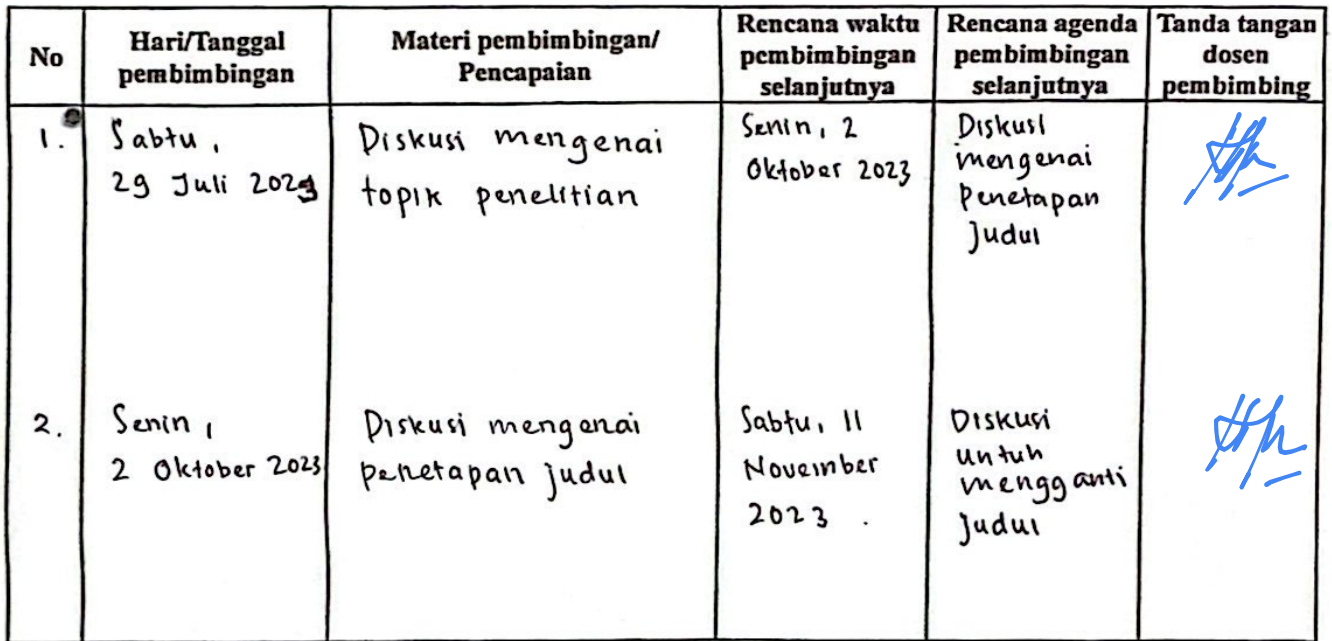 No
Hari/Tanggal
pembimbingan
Materi pembimbingan/
Pencapaian
Rencana waktu
pembimbingan
selanjutnya
Rencana agenda
pembimbingan
selanjutnya
Tanda tangan
dosen
pembimbing
1.
Sabtu,
29 Juli 2023
Diskusi mengenai
topik penelitian
Senin, 2
Oktober 2023
Diskusi
mengenai
penetapan
judul
2.
Senin,
2 Oktober 2023
Diskusi mengenai
penetapan judul
Sabtu, 11
November
2023.
Diskusi
untuk
mengganti
judul